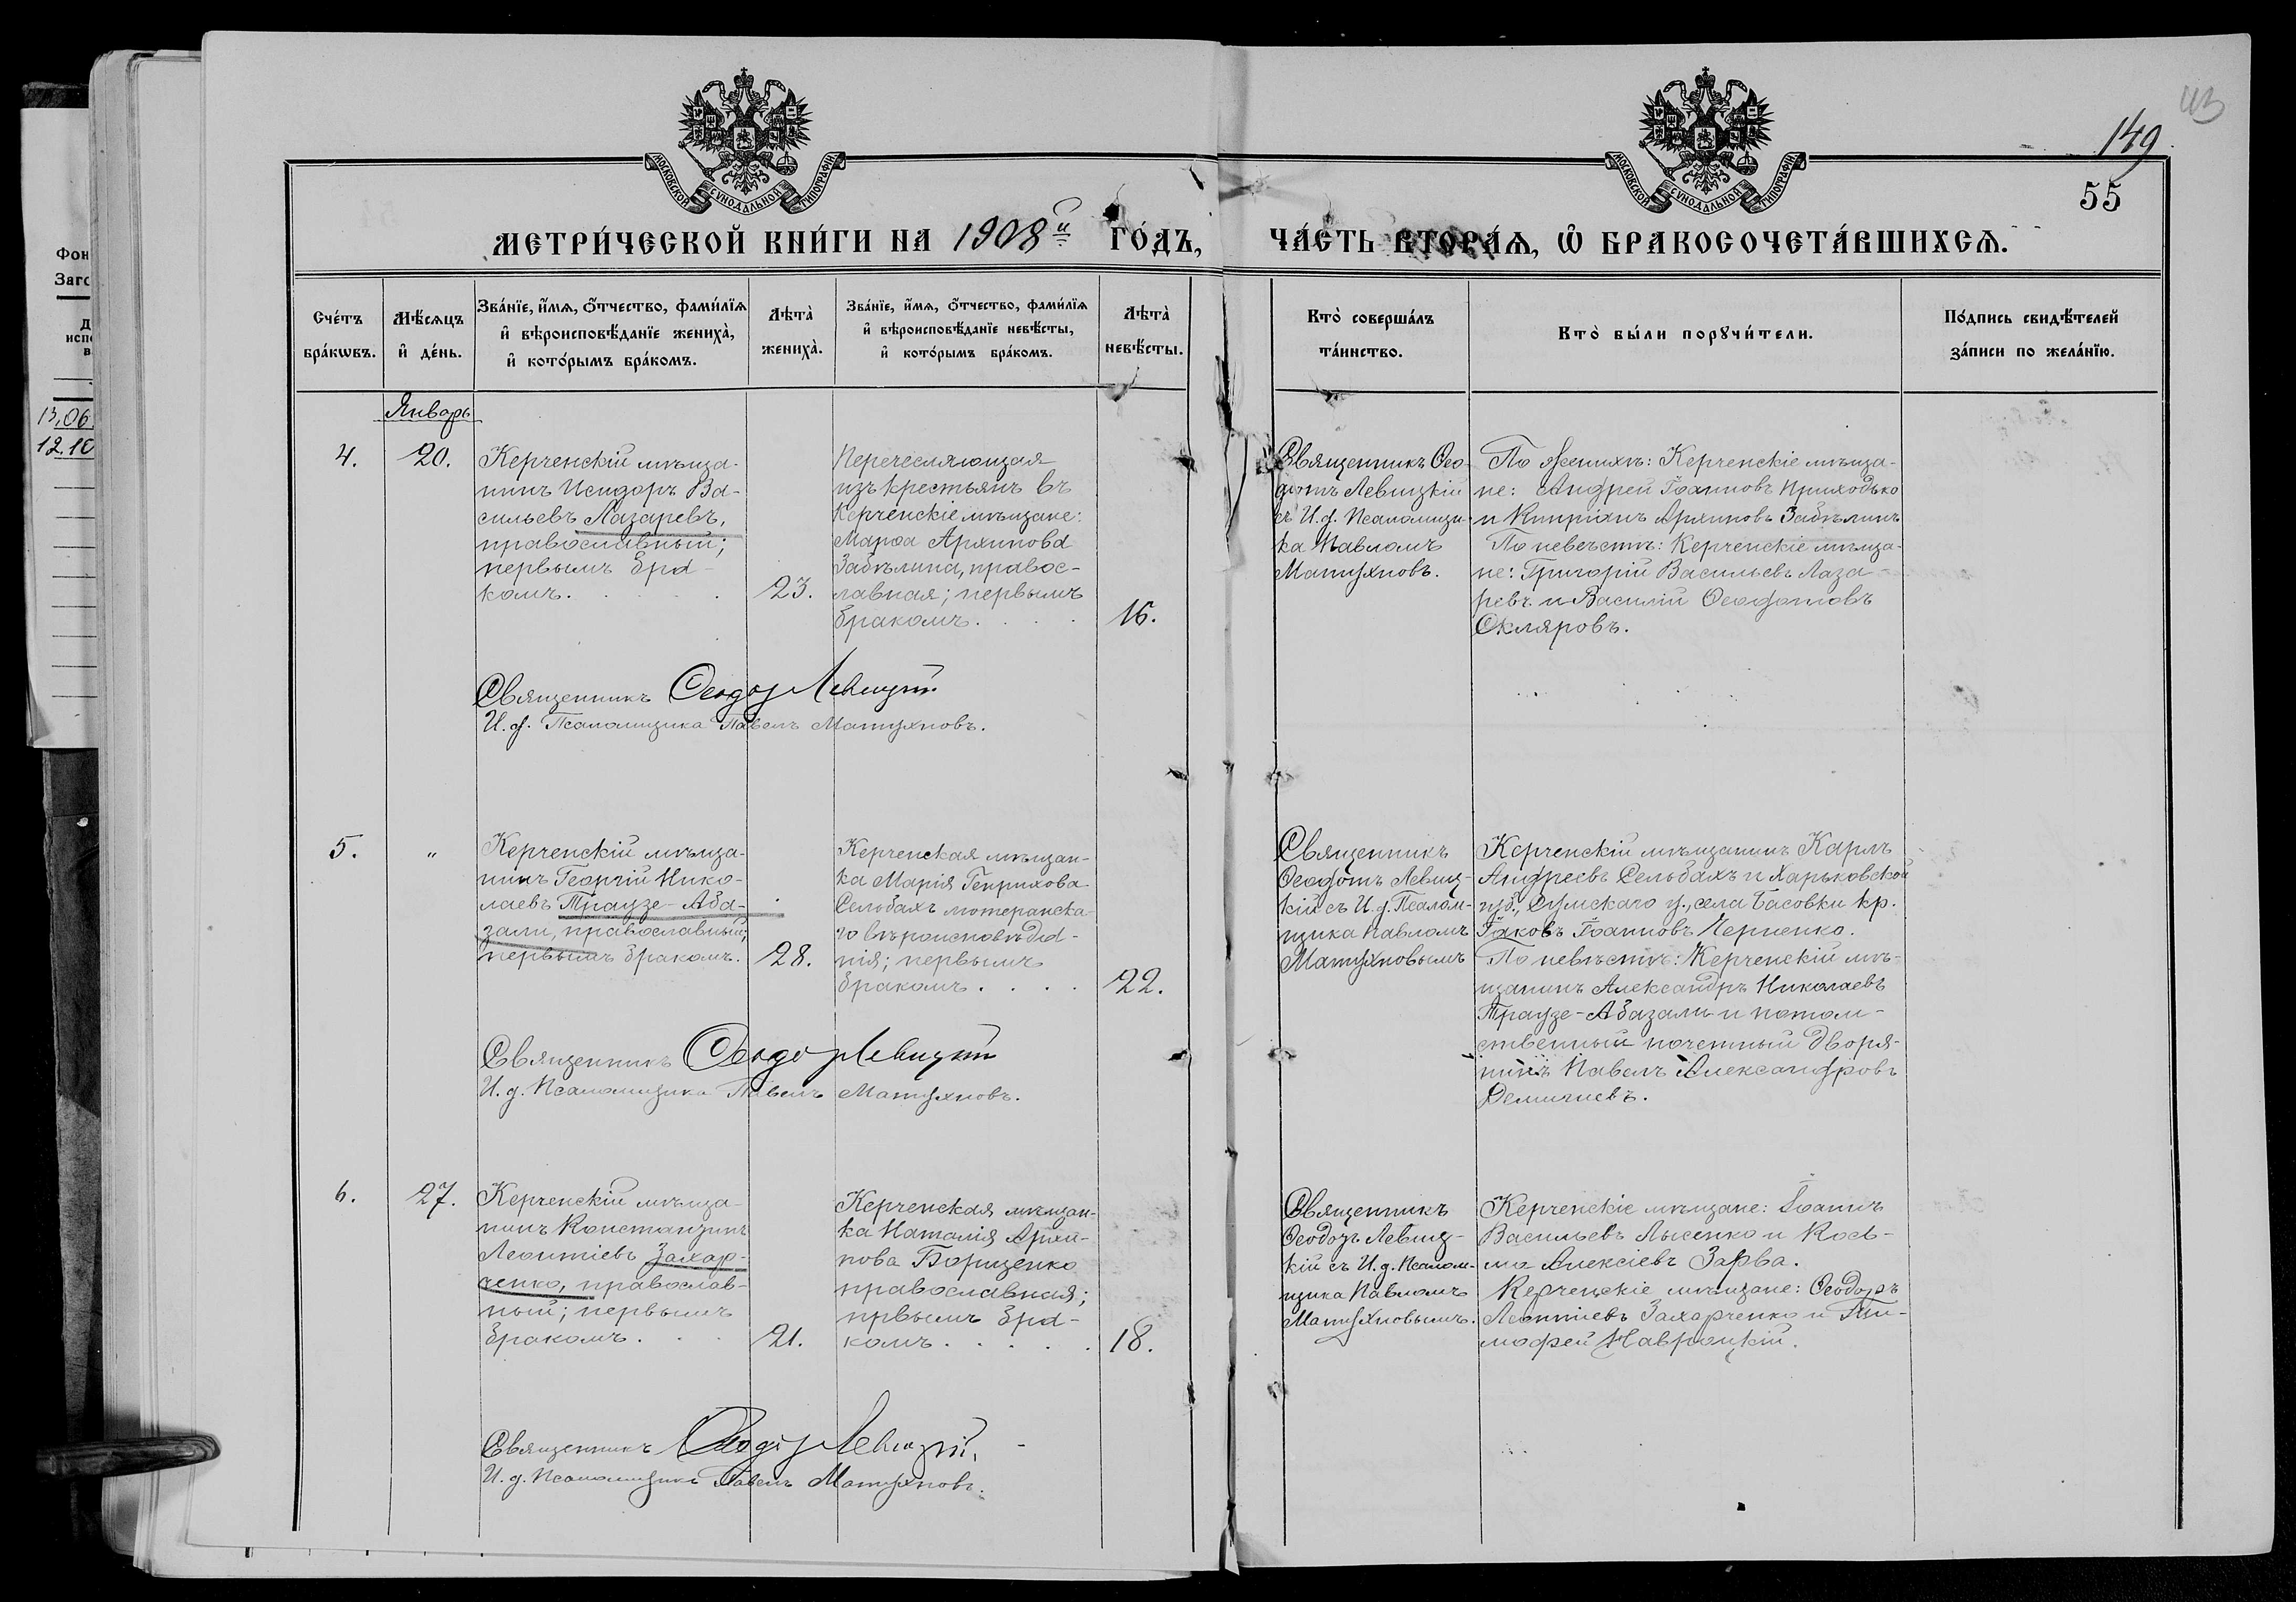 из
149
55
МОСКОВСКОЙ СѴНОДАЛЬНОЙ ТИПОГРАФІИ
МОСКОВСКОЙ СѴНОДАЛЬНОЙ ТИПОГРАФІИ
МЕТРИ́ЧЕСКОЙ КНИ́ГИ НА 1908й ГО́ДЪ,
ЧА́СТЬ ВТОРА́Ѧ, Ѽ БРАКОСОЧЕТА́ВШИХСѦ.
Фон
Заго
Д
испо
в
13.06
12.10
Сче́тъ
бра́кѡвъ.
Мѣ́сѧцъ
и҆ де́нь.
Зва́нїе, и҆́мѧ, ѻ҆́тчество, фами́лїѧ
и҆ вѣроисповѣ́данїе жениха̀,
и҆ кото́рымъ бра́комъ.
Лѣта̀
жениха̀.
Зва́нїе, и҆́мѧ, ѻ҆́тчество, фами́лїѧ
и҆ вѣроисповѣ́данїе невѣ́сты,
и҆ кото́рымъ бра́комъ.
Лѣта̀
невѣ́сты.
Кто̀ соверша́лъ
та́инство.
Кто̀ бы́ли порꙋчи́тели.
По́дпись свидѣ́телей
за́писи по жела́нїю.
Январь
4.
20.
Керченскій мѣща-
нинъ Исидоръ Ва-
сильевъ Лазаревъ,
православный;
первымъ бра-
комъ.
23.
Перечесляющая
изъ крестьянъ въ
Керченскіе мѣщане:
Марѳа Архипова
Забѣлина, правос-
лавная; первымъ
бракомъ.
16.
Священникъ Ѳео-
дотъ Левицкій
съ И.д. Псаломщи-
ка Павломъ
Матухновъ.
По женихѣ: Керченскіе мѣща-
не: Андрей Іоанновъ Приходько
и Кипріанъ Архиповъ Забѣлинъ
По невѣстѣ: Керченскіе мѣща-
не: Григорій Васильевъ Лаза-
ревъ и Василій Ѳеодотовъ
Скляровъ.
Священникъ Ѳеодотъ Левицкій
И.д. Псаломщика Павелъ Матухновъ.
5.
"
Керченскій мѣща-
нинъ Георгій Нико-
лаевъ Траузе-Аба-
зали, православный;
первымъ бракомъ.
28.
Керченская мѣщан-
ка Марія Генрихова
Сельбахъ лютеранска-
го вѣроисповѣда-
нія; первымъ
бракомъ.
22.
Священникъ
Ѳеодотъ Левиц-
кій съ И.д. Псалом-
щика Павломъ
Матухновымъ
Керченскій мѣщанинъ Карлъ
Андреевъ Сельбахъ и Харьковской
губ., Сумскаго у., села Басовки кр.
Іаковъ Іоанновъ Черненко.
По невѣстѣ: Керченскій мѣ-
щанинъ Александръ Николаевъ
Траузе-Абазали и потом-
ственный почетный дворя-
нинъ Павелъ Александровъ
Священникъ Ѳеодотъ Левицкій
И.д. Псаломщика Павелъ Матухновъ.
6.
27.
Керченскій мѣща-
нинъ Константинъ
Леонтіевъ Захар-
ченко, православ-
ный; первымъ
бракомъ.
21.
Керченская мѣщан-
ка Наталія Архи-
пова Борщенко
православная;
првымъ бра-
комъ.
18.
Священникъ
Ѳеодотъ Левиц-
кій съ И.д. Псалом-
щика Павломъ
Матухновымъ.
Керченскіе мѣщане: Іоаннъ
Васильевъ Лысенко и Козь-
ма Алексіевъ Зарва.
Керченскіе мѣщане: Ѳеодоръ
Леонтіевъ Захарченко и Ти-
мофей Навроцкій.
Священникъ Ѳеодотъ Левицкій.
И.д. Псаломщика Павелъ Матухновъ.